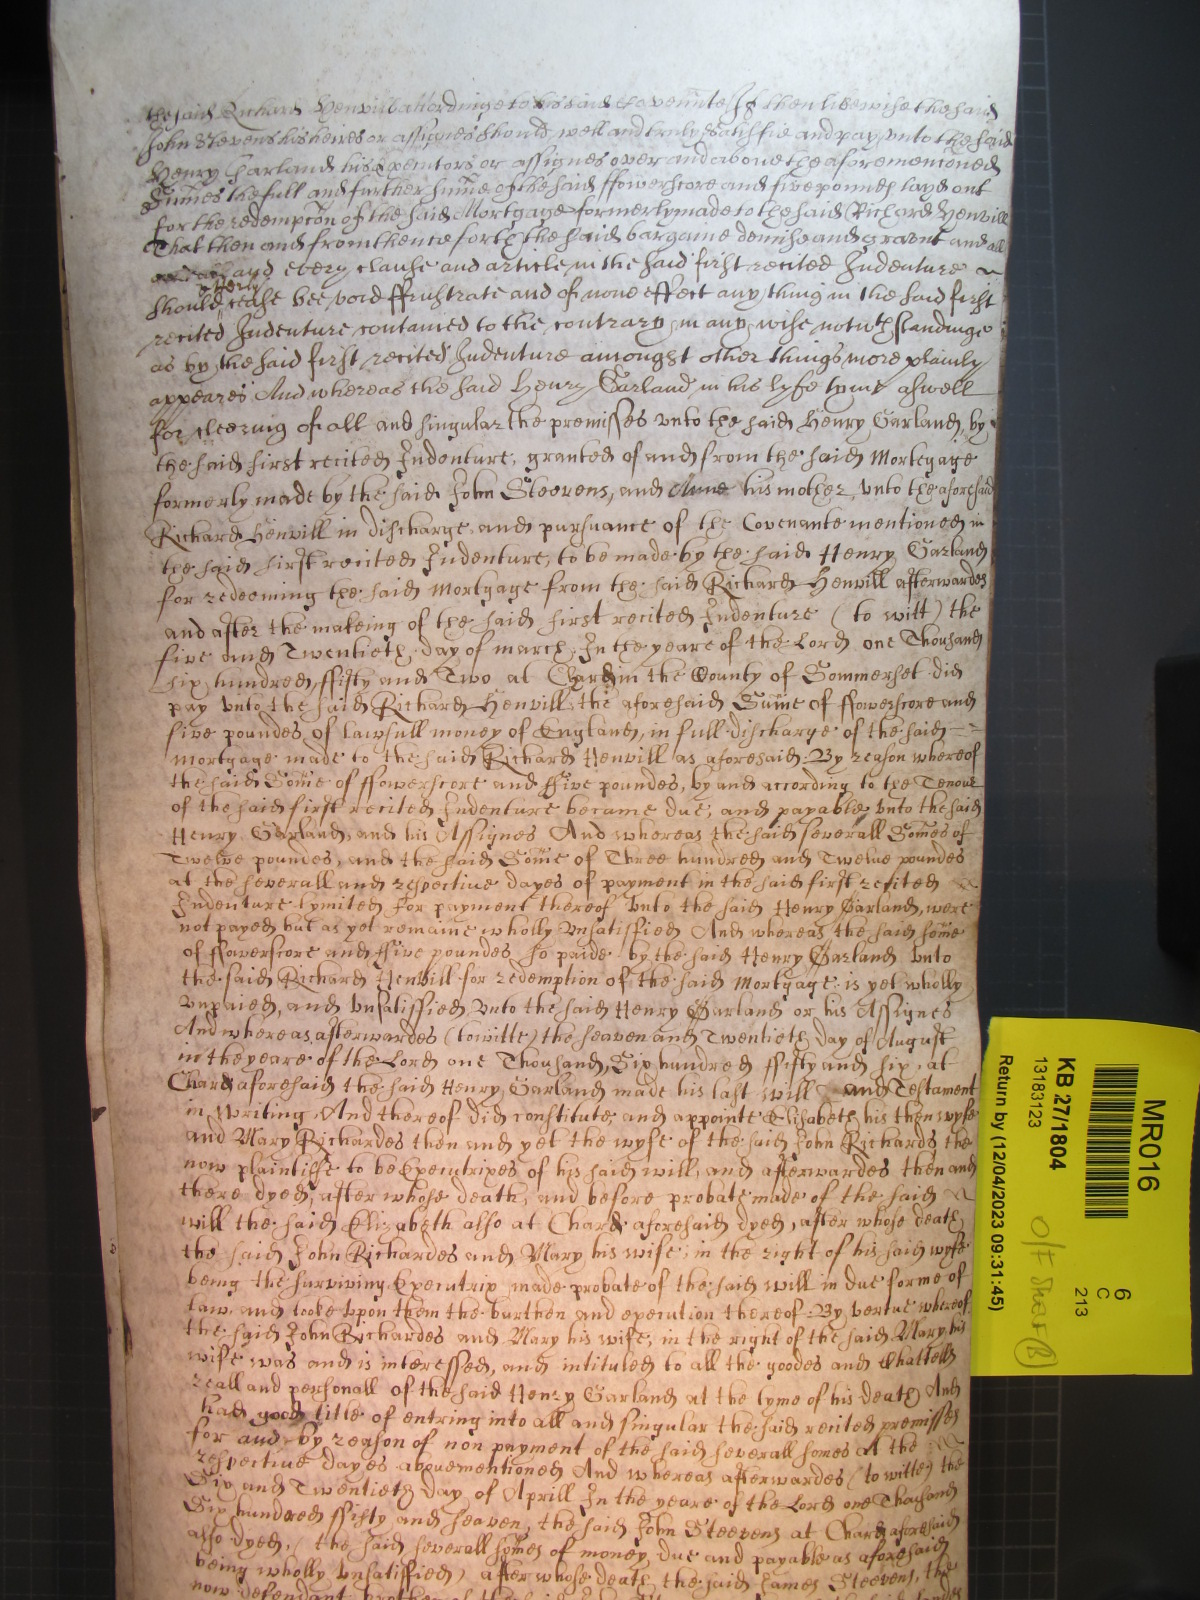 the said Richard Henvill accordinge to his said Covenante If then likewise the said
John Stevens his heires or assignes should well and truly satisfie and pay unto the said
Henry Garland his Executors or assignes over and above the aforementioned
Sumes the full and further sume of the said ffowerscore and five pounds layd out
for the redempcon of the said Mortgage formerly made to the said Richard Henvill
That then and from thence forth the said bargaine demise and graunt and all
and every clause and article in the said first recited Indenture
should utterly cease bee void ffrustrate and of none effect any thing in the said first
recited Indenture contained to the contrary in any wise notwthstandinge
as by the said first recited Indenture amongst other things more plainly
appeares And whereas the said Henry Garland in his lyfe tyme aswell
for cleering of all and singular the premisses unto the said Henry Garland, by
the said first recited Indenture, granted of and from the said Mortegage
formerly made by the said John Steevens, and his mother, unto the aforesaid
Richard Henvill in discharge and pursuance of the Covenante mentioned in
the said first recited Indenture, to be made by the said Henry Garland
for redeeming the said Mortgage from the said Richard Henvill afterwardes
and after the makeing of the said first recited Indenture (to witt) the
five and Twentieth day of march In the yeare of the Lord one Thousand
six hundred ffifty and Two at Chard in the County of Sommerset did
pay unto the said Richard Henvill the aforesaid Sume of ffowerscore and
five poundes of lawfull money of England, in full discharge of the said
mortgage made to the said Richard Henvill as aforesaid By reason whereof
the said Some of ffowerscore and ffive poundes, by and according to the Tenour
of the said first recited Indenture became due, and payable unto the said
Henry Garland, and his Assignes And whereas the said severall Somes of
Twelve poundes, and the said Some of Three hundred and Twelve poundes
at the severall and respective dayes of payment in the said first recited
Indenture lymited for payment thereof unto the said Henry Garland, were
not payed but as yet remaine wholly unsatisfied And whereas the said some
of ffowerscore and ffive poundes so paide by the said Henry Garland unto
the said Richard Henvill for redemption of the said Mortgage is yet wholly
unpaied, and unsatisfied unto the said Henry Garland or his Assignes
And whereas afterwardes (to witte) the seaven and Twentieth day of August
in the yeare of the Lord one Thousand, Six hundred ffifty and six, at
Chard aforesaid the said Henry Garland made his last will and Testament
in writing And thereof did constitute and appointe Elisabeth his then wyfe
and Mary Richardes then and yet the wyfe of the said John Richardes the
now plaintiffe to be Executrixes of his said will, and afterwardes then and
there dyed, after whose death, and before probate made of the said
will the said Elizabeth also at Chard aforesaid dyed, after whose death
the said John Richardes and Mary his wife, in the right of his said wyfe
being the surviving Executrix made probate of the said will in due forme of
law and tooke upon them the burthen and execution thereof By vertue whereof
the said John Richardes and Mary his wife, in the right of the said Mary his
wife was and is interessed, and intituled to all the goodes and Chattells
reall and personall of the said Henry Garland at the tyme of his death And
had good title of entring into all and singular the said recited premisses
for and by reason of non payment of the said severall somes at the
respective dayes abovementioned And whereas afterwardes (to witte) the
Six and Twentieth day of Aprill In the yeare of the Lord one Thousand
Six hundred ffifty and seaven, the said John Steevens at Chard aforesaid
also dyed, (the said severall somes of money due and payable as aforesaid
being wholly unsatisfied) after whose death the said James Steevens, the
now defendant
MR016
6
C
213
KB 27/1804
13183123
Return by (12/04/2023 09:31:45)